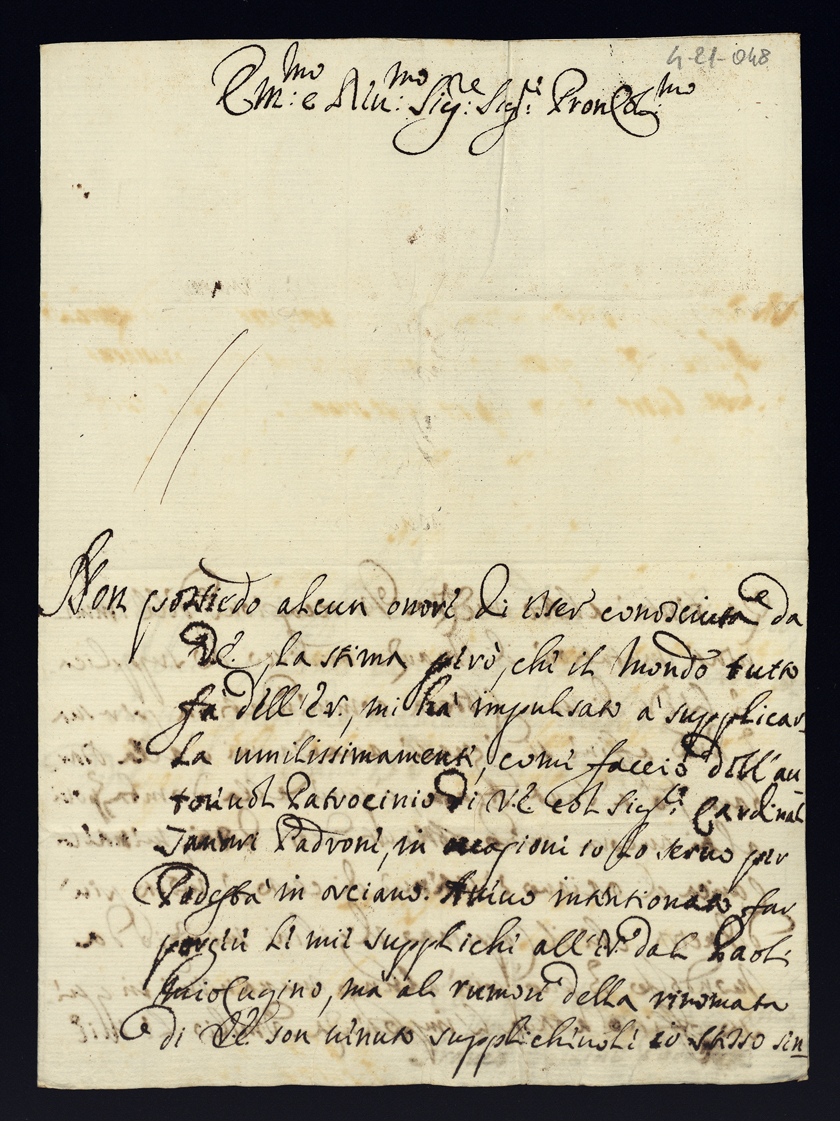 4-21-048
Rm:mo e Illu:mo Sig:re Sig:re Pron Col:mo
Non possiedo alcun onore di esser conosciuta da
V.E., la stima però, che il Mondo tutto
fa dell'E.V., mi hà impulsato à supplicar-
la umilissimamente, come faccio dell'au-
toreuol Patrocinio di V.E. col Sig.re Cardinal
Padrone, in occasione io lo seruo per
Podestà in orciano. Aueuo intentionato far
porgere le mie suppliche all'E.V. dal Paoli
mio Cugino, mà al rumore della rinomata
di V.E. son uenuto supplicheuole io stesso sin-